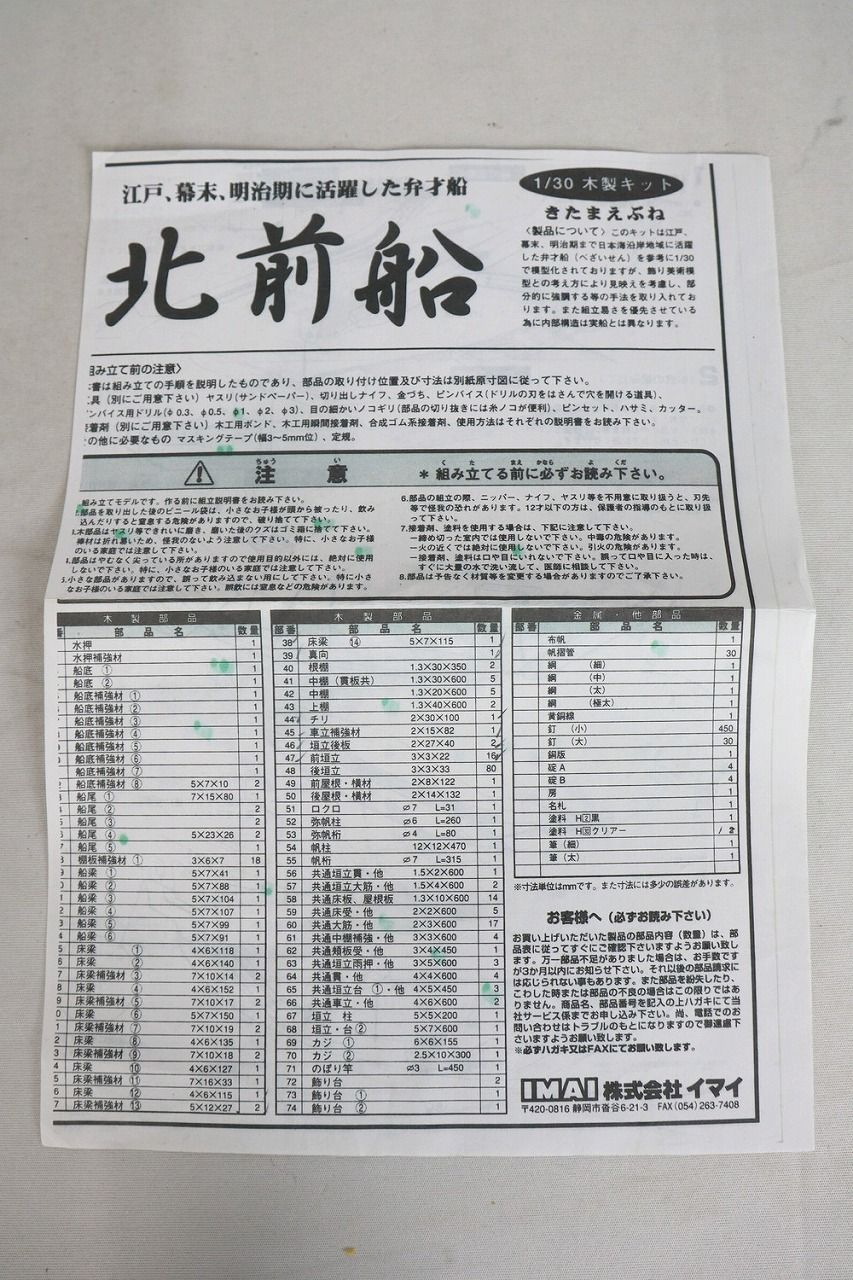 江戸、幕末、明治期に活躍した弁才船
北前船
1/30 木製キット
きたまえぶね
〈製品について〉このキットは江戸、
幕末、明治期まで日本海沿岸地域に活躍
した弁才船（べざいせん）を参考に1/30
で模型化されておりますが、飾り美術模
型との考え方により見映えを考慮し、部
分的に強調する等の手法を取り入れてお
ります。また組立易さを優先させている
為に内部構造は実船とは異なります。
組み立て前の注意〉
書は組み立ての手順を説明したものであり、部品の取り付け位置及び寸法は別紙原寸図に従って下さい。
具（別にご用意下さい）ヤスリ(サンドペーパー)、切り出しナイフ、金づち、ピンバイス(ドリルの刃をはさんで穴を開ける道具)、
ンバイス用ドリル(φ0.3、φ0.5、φ1、φ2、φ3)、目の細かいノコギリ(部品の切り抜きには糸ノコが便利)、ピンセット、ハサミ、カッター。
接着剤（別にご用意下さい）木工用ボンド、木工用瞬間接着剤、合成ゴム系接着剤、使用方法はそれぞれの説明書をお読み下さい。
の他に必要なもの マスキングテープ(幅3〜5mm位)、定規。
注意
ちゅう い
＊組み立てる前に必ずお読み下さい。
く た まえ かなら よ くだ
組み立てモデルです。作る前に組立説明書をお読み下さい。
部品を取り出した後のビニール袋は、小さなお子様が頭から被ったり、飲み
込んだりすると窒息する危険がありますので、破り捨てて下さい。
木部品はヤスリ等できれいに磨き、磨いた後のクズはゴミ箱に捨てて下さい。
棒材は折れ易いため、怪我のないよう注意して下さい。特に、小さなお子様
のいる家庭では注意して下さい。
部品はやむなく尖っている所がありますので使用目的以外には、絶対に使用
しないで下さい。特に、小さなお子様のいる家庭では注意して下さい。
小さな部品がありますので、誤って飲み込まない用にして下さい。特に小さ
なお子様のいる家庭では注意して下さい。誤飲には窒息などの危険があります。
6.部品の組立の際、ニッパー、ナイフ、ヤスリ等を不用意に取り扱うと、刃先
等で怪我の恐れがあります。12才以下の方は、保護者の指導のもとに取り扱
って下さい。
7.接着剤、塗料を使用する場合は、下記に注意して下さい。
ー締め切った室内では使用しないで下さい。中毒の危険があります。
ー火の近くでは絶対に使用しないで下さい。引火の危険があります。
ー接着剤、塗料は口や目にいれないで下さい。誤って口や目に入った時は、
すぐに大量の水で洗い流して、医師に相談して下さい。
8.部品は予告なく材質等を変更する場合がありますのでご了承下さい。
木製部品
部品名 数量
水押 1
水押補強材 1
船底 ① 1
船底 ② 1
船底補強材 ① 1
船底補強材 ② 1
船底補強材 ③ 1
船底補強材 ④ 1
船底補強材 ⑤ 1
船底補強材 ⑥ 1
船底補強材 ⑦ 1
船底補強材 ⑧ 5×7×10 2
船尾 ① 7×15×80 1
船尾 ② 1
船尾 ③ 2
船尾 ④ 5×23×26 2
船尾 ⑤ 1
棚板補強材 ① 3×6×7 18
船梁 ① 5×7×41 1
船梁 ② 5×7×88 1
船梁 ③ 5×7×104 1
船梁 ④ 5×7×107 1
船梁 ⑤ 5×7×99 1
船梁 ⑥ 5×7×91 1
床梁 ① 4×6×118 1
床梁 ② 4×6×140 1
床梁補強材 ③ 7×10×14 2
床梁 ④ 4×6×152 1
床梁補強材 ⑤ 7×10×17 2
床梁 ⑥ 5×7×150 1
床梁補強材 ⑦ 7×10×19 2
床梁 ⑧ 4×6×135 1
床梁補強材 ⑨ 7×10×18 2
床梁 ⑩ 4×6×127 1
床梁補強材 ⑪ 7×16×33 1
床梁 ⑫ 4×6×115 1
床梁補強材 ⑬ 5×12×27 2
木製部品
部番 部品名 数量
38 床梁 ⑭ 5×7×115 1
39 真向 1
40 根棚 1.3×30×350 2
41 中棚（貫板共） 1.3×30×600 5
42 中棚 1.3×20×600 5
43 上棚 1.3×40×600 2
44 チリ 2×30×100 1
45 車立補強材 2×15×82 1
46 垣立後板 2×27×40 2
47 前垣立 3×3×22 16
48 後垣立 3×3×33 80
49 前屋根・横材 2×8×122 1
50 後屋根・横材 2×14×132 1
51 ロクロ ⌀7 L=31 1
52 弥帆柱 ⌀6 L=260 1
53 弥帆桁 ⌀4 L=80 1
54 帆柱 12×12×470 1
55 帆桁 ⌀7 L=315 1
56 共通垣立貫・他 1.5×2×600 1
57 共通垣立大筋・他 1.5×4×600 2
58 共通床板、屋根板 1.3×10×600 14
59 共通床受・他 2×2×600 5
60 共通大筋・他 2×3×600 17
61 共通中棚補強・他 3×3×600 4
62 共通頬板受・他 3×4×450 1
63 共通垣立雨押・他 3×5×600 3
64 共通貫・他 4×4×600 4
65 共通垣立台 ①・他 4×5×450 3
66 共通車立・他 4×6×600 2
67 垣立 柱 5×5×200 1
68 垣立・台② 5×7×600 1
69 カジ ① 6×6×155 1
70 カジ ② 2.5×10×300 1
71 のぼり竿 ⌀3 L=450 1
72 飾り台 2
73 飾り台 ① 1
74 飾り台 ② 1
金属・他部品
部番 部品名 数量
布帆 1
帆摺管 30
綱 （細） 1
綱 （中） 1
綱 （太） 1
綱 （極太） 1
黄銅線 1
釘 （小） 450
釘 （大） 30
銅版 1
碇A 4
碇B 4
房 1
名札 1
塗料 H②黒 1
塗料 H㉚クリアー / 2
筆（細） 1
筆（太） 1
※寸法単位はmmです。また寸法には多少の誤差があります。
お客様へ（必ずお読み下さい）
お買い上げいただいた製品の部品内容（数量）は、部
品表に従ってすぐにご確認下さいますようお願い致し
ます。万一部品不足がありました場合は、お手数です
が3か月以内にお知らせ下さい。それ以後の部品請求に
は応じられない事もあります。また部品を紛失したり、
こわした時または部品の不良の場合はこの限りではあ
りません。商品名、部品番号を記入の上ハガキにて当
社サービス係までお申し込み下さい。尚、電話でのお
問い合わせはトラブルのもとになりますので御遠慮下
さいますようお願い致します。
※必ずハガキ又はFAXにてお願い致します。
IMAI 株式会社 イマイ
〒420-0816 静岡市沓谷6-21-3 FAX(054)263-7408